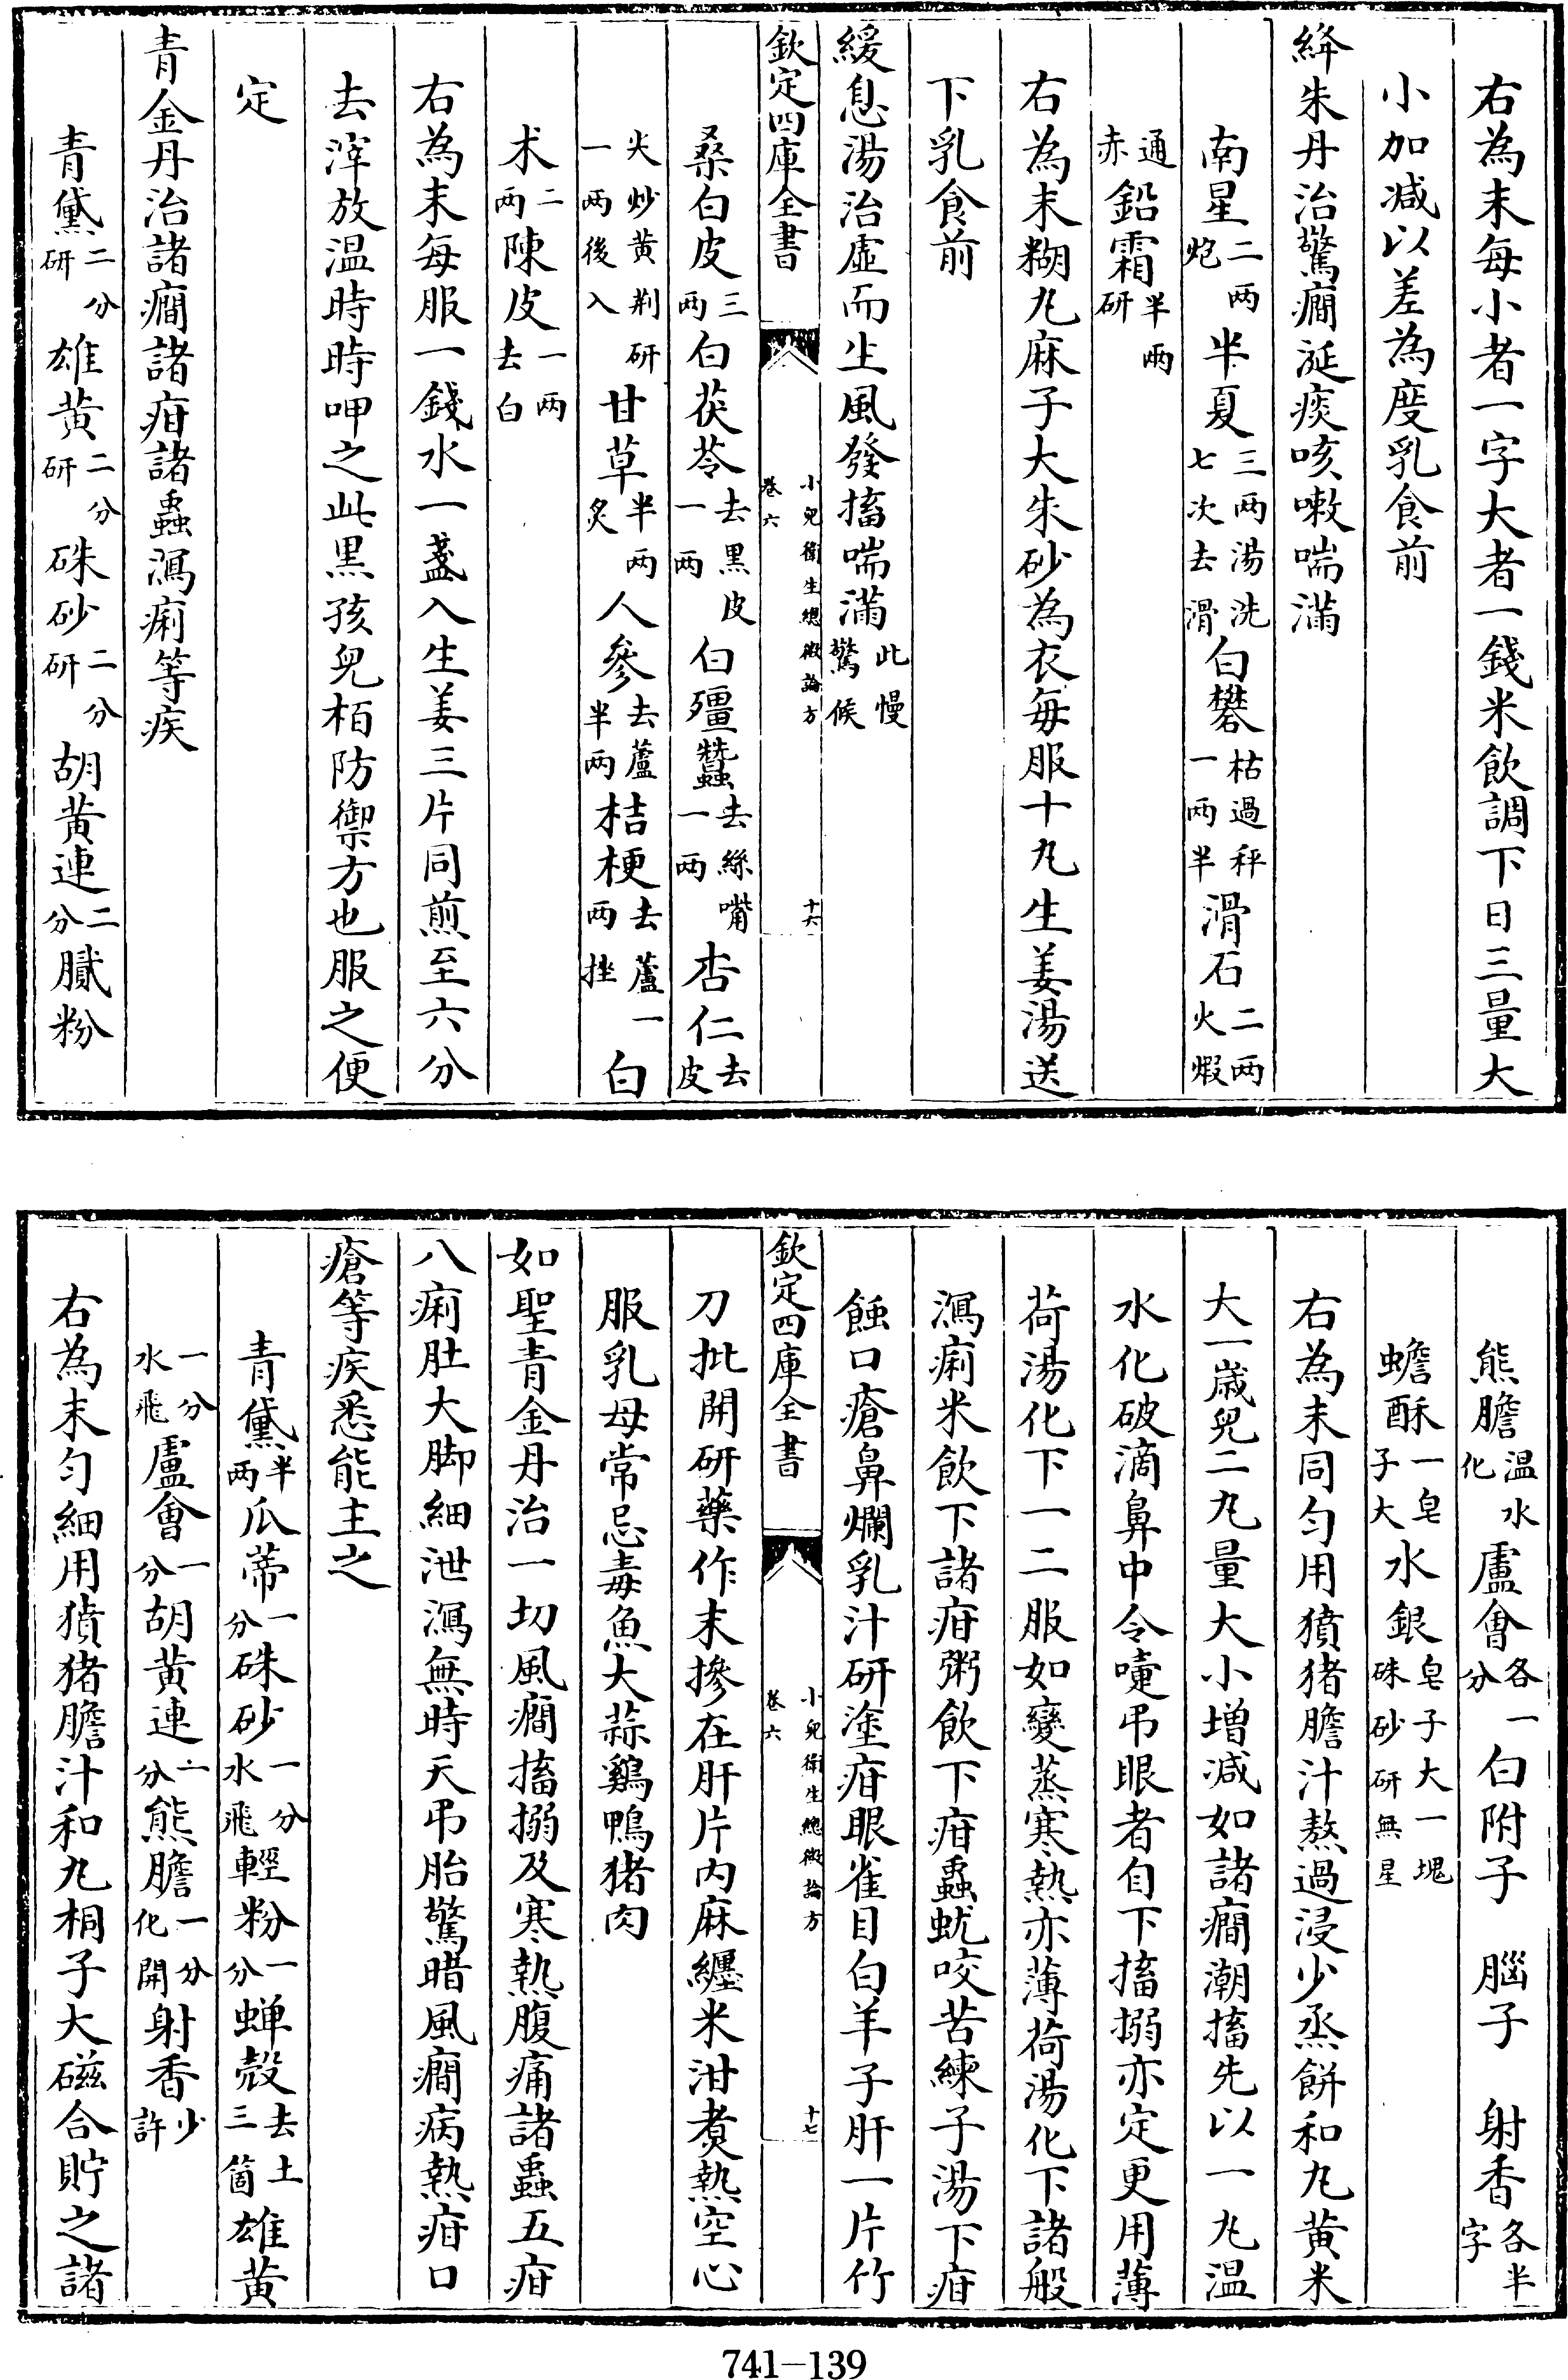 右為末每小者一字大者一錢米飲調下日三量大
小加减以差為度乳食前
絳朱丹治驚癎涎痰咳嗽喘滿
南星二两炮半夏三两湯洗七次去滑白礬枯過秤一两半滑石二两火煆
通赤鉛霜半兩研
右為末糊丸麻子大朱砂為衣每服十丸生姜湯送
下乳食前
緩息湯治虛而生風發搐喘滿此慢驚候
欽定四庫全書
小兒衛生總微論方
卷六
十六
桑白皮三两白茯苓去黑皮一两白殭蠶去絲嘴一两杏仁去皮
尖炒黄剉研一两後入甘草半两炙人參去蘆半两桔梗去蘆一两挫白
术二两陳皮一两去白
右為末每服一錢水一盞入生姜三片同煎至六分
去滓放溫時時呷之此黑孩兒栢防禦方也服之便
定
青金丹治諸癎諸疳諸蟲瀉痢等疾
青黛二分研雄黄二分研硃砂二分研胡黄連二分膩粉
熊膽温水化盧會各一分白附子 腦子 射香各半字
蟾酥一皂子大水銀皂子大一塊硃砂研無星
右為末同匀用獖猪膽汁熬過浸少烝餅和丸黄米
大一歲兒二丸量大小增减如諸癎潮搐先以一丸温
水化破滴鼻中令嚏弔眼者自下搐搦亦定更用薄
荷湯化下一二服如變蒸寒熱亦薄荷湯化下諸般
瀉痢米飲下諸疳粥飲下疳蟲蚘咬苦練子湯下疳
蝕口瘡鼻爛乳汁研塗疳眼雀目白羊子肝一片竹
欽定四庫全書
小兒衛生總微論方
卷六
十七
刀批開研藥作末摻在肝片内麻纒米泔煮熱空心
服乳母常忌毒魚大蒜鷄鴨猪肉
如聖青金丹治一切風癎搐搦及寒熱腹痛諸蟲五疳
八痢肚大脚細泄瀉無時天弔胎驚暗風癎病熱疳口
瘡等疾悉能主之
青黛半两瓜蒂一分硃砂一分水飛輕粉一分蝉殼去土三箇雄黄
一分水飛盧會一分胡黄連二分熊膽一分化開射香少許
右為末匀細用獖猪膽汁和丸桐子大磁合貯之諸
741-139